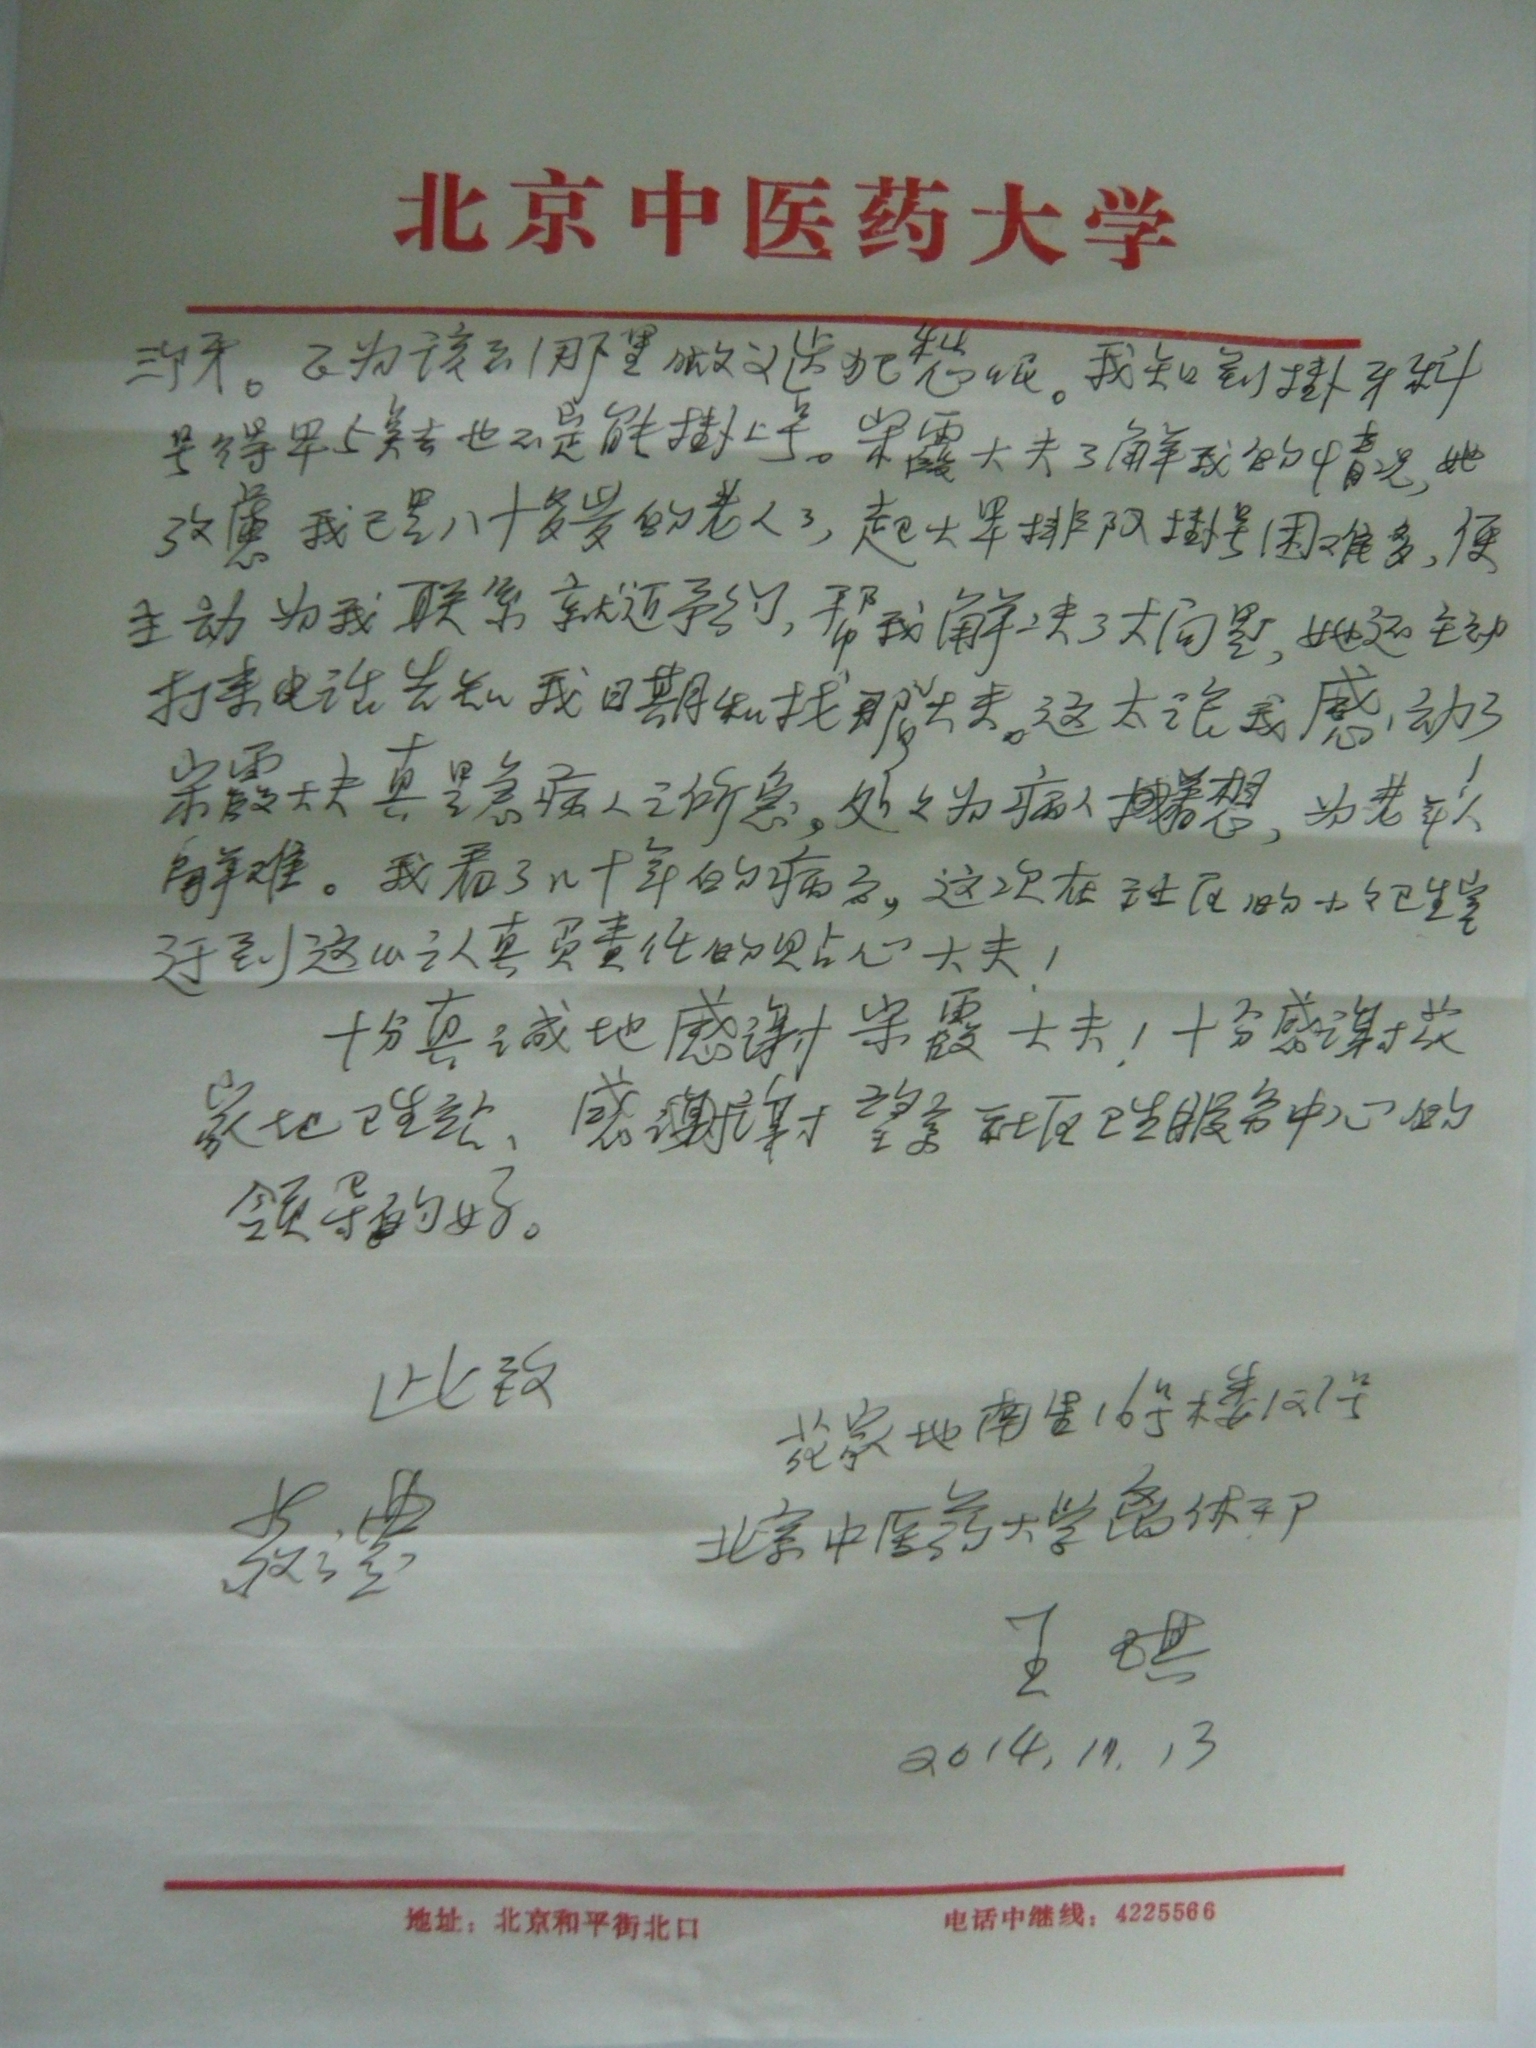 北京中医药大学
牙。正为该到那里做义齿犯愁呢。我知到挂牙科
号得早5点去也不定能挂上号。宋霞大夫了解我的情况,她
考虑我已是八十多岁的老人了,起大早排队挂号困难多,便
主动为我联系就近予约,帮我解决了大问题,她还主动
打来电话告知我日期和找那位大夫。这太让我感动了!
宋霞大夫真是急病人之所急。处处为病人着想,为老年人
解难。我看了几十年的病了,这次在社区的小卫生室
迂到这么认真负责任的贴心大夫!
十分真诚地感谢宋霞大夫!十分感谢花
家地卫生站、感谢望京社区卫生服务中心的
领导的好。
此致
敬礼
花家地南里16号楼127号
北京中医药大学离休干部
王琪
2014.11.13
地址:北京和平街北口
电话中继线:4225566